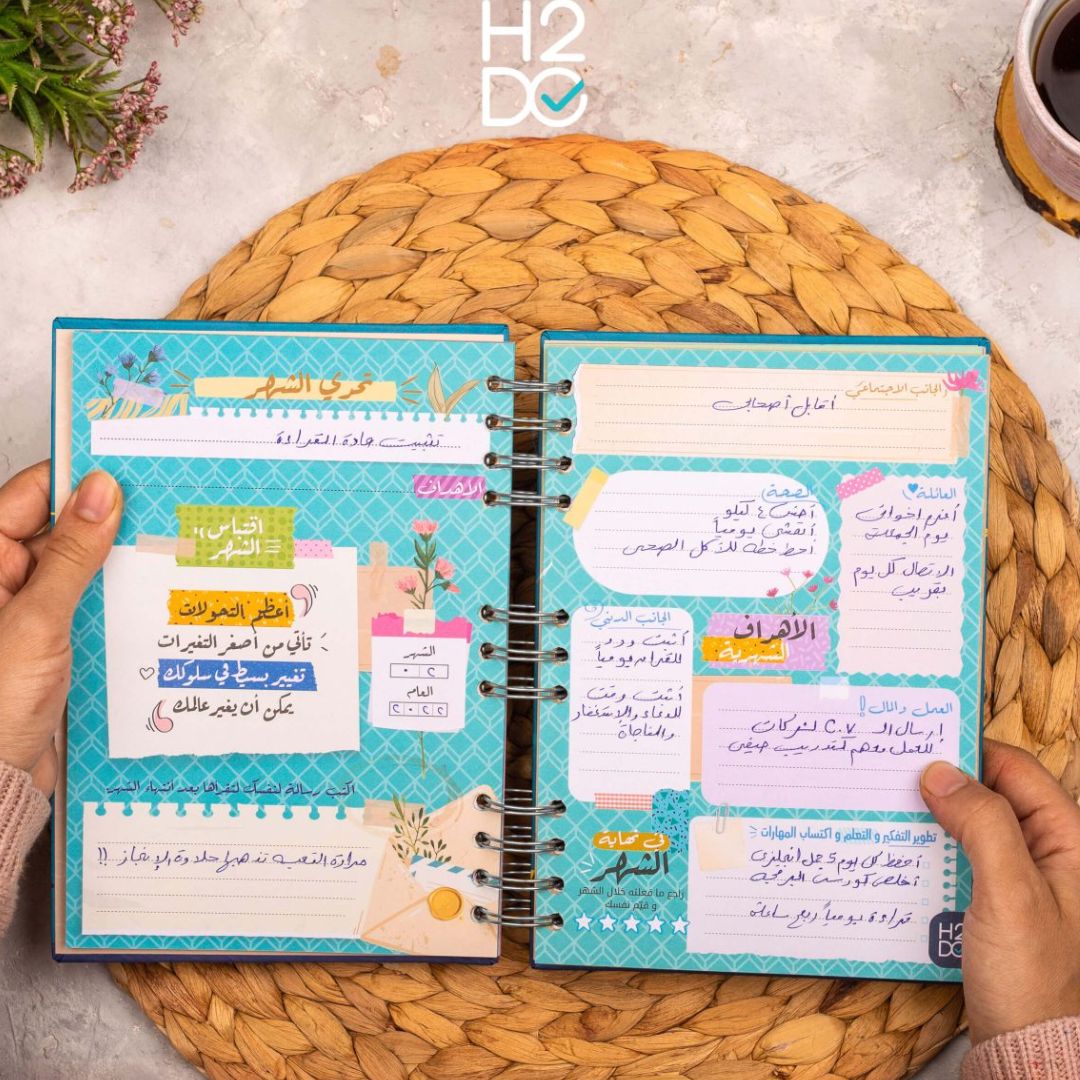 H2
DO
تحدي الشهر
تثبيت عادة القراءة
الاهداف
اقتباس
الشهر
أعظم التحولات
تأتي من أصغر التغيرات
تغيير بسيط في سلوكك
يمكن أن يغير عالمك
الشهر
٠٢
العام
٢٠٢٢
اكتب رسالة لنفسك لتقرأها بعد انتهاء الشهر
مرارة التعب تذهبها حلاوة الإنجاز !!
الجانب الاجتماعي
أقابل أصحابي
العائلة
أعزم اخواتي
يوم الجمعة
الاتصال كل يوم
بقريب
الصحة
أخس ٤ كيلو
أتمشى يومياً
أحط خطة للأكل الصحي
الجانب الديني
أثبت ورد
للقرآن يومياً
أثبت وقت
للدعاء والاستغفار
والمناجاة
الاهداف
الشهرية
العمل والمال!
إرسال الـ C.V لشركات
للعمل معهم كتدريب صيفي
تطوير التفكير و التعلم و اكتساب المهارات
أحفظ كل يوم 5 جمل انجليزي
أخلص كورس البرمجة
قراءة يومياً ربع ساعة
في نهاية
الشهر
راجع ما فعلته خلال الشهر
و قيّم نفسك
H2
DO